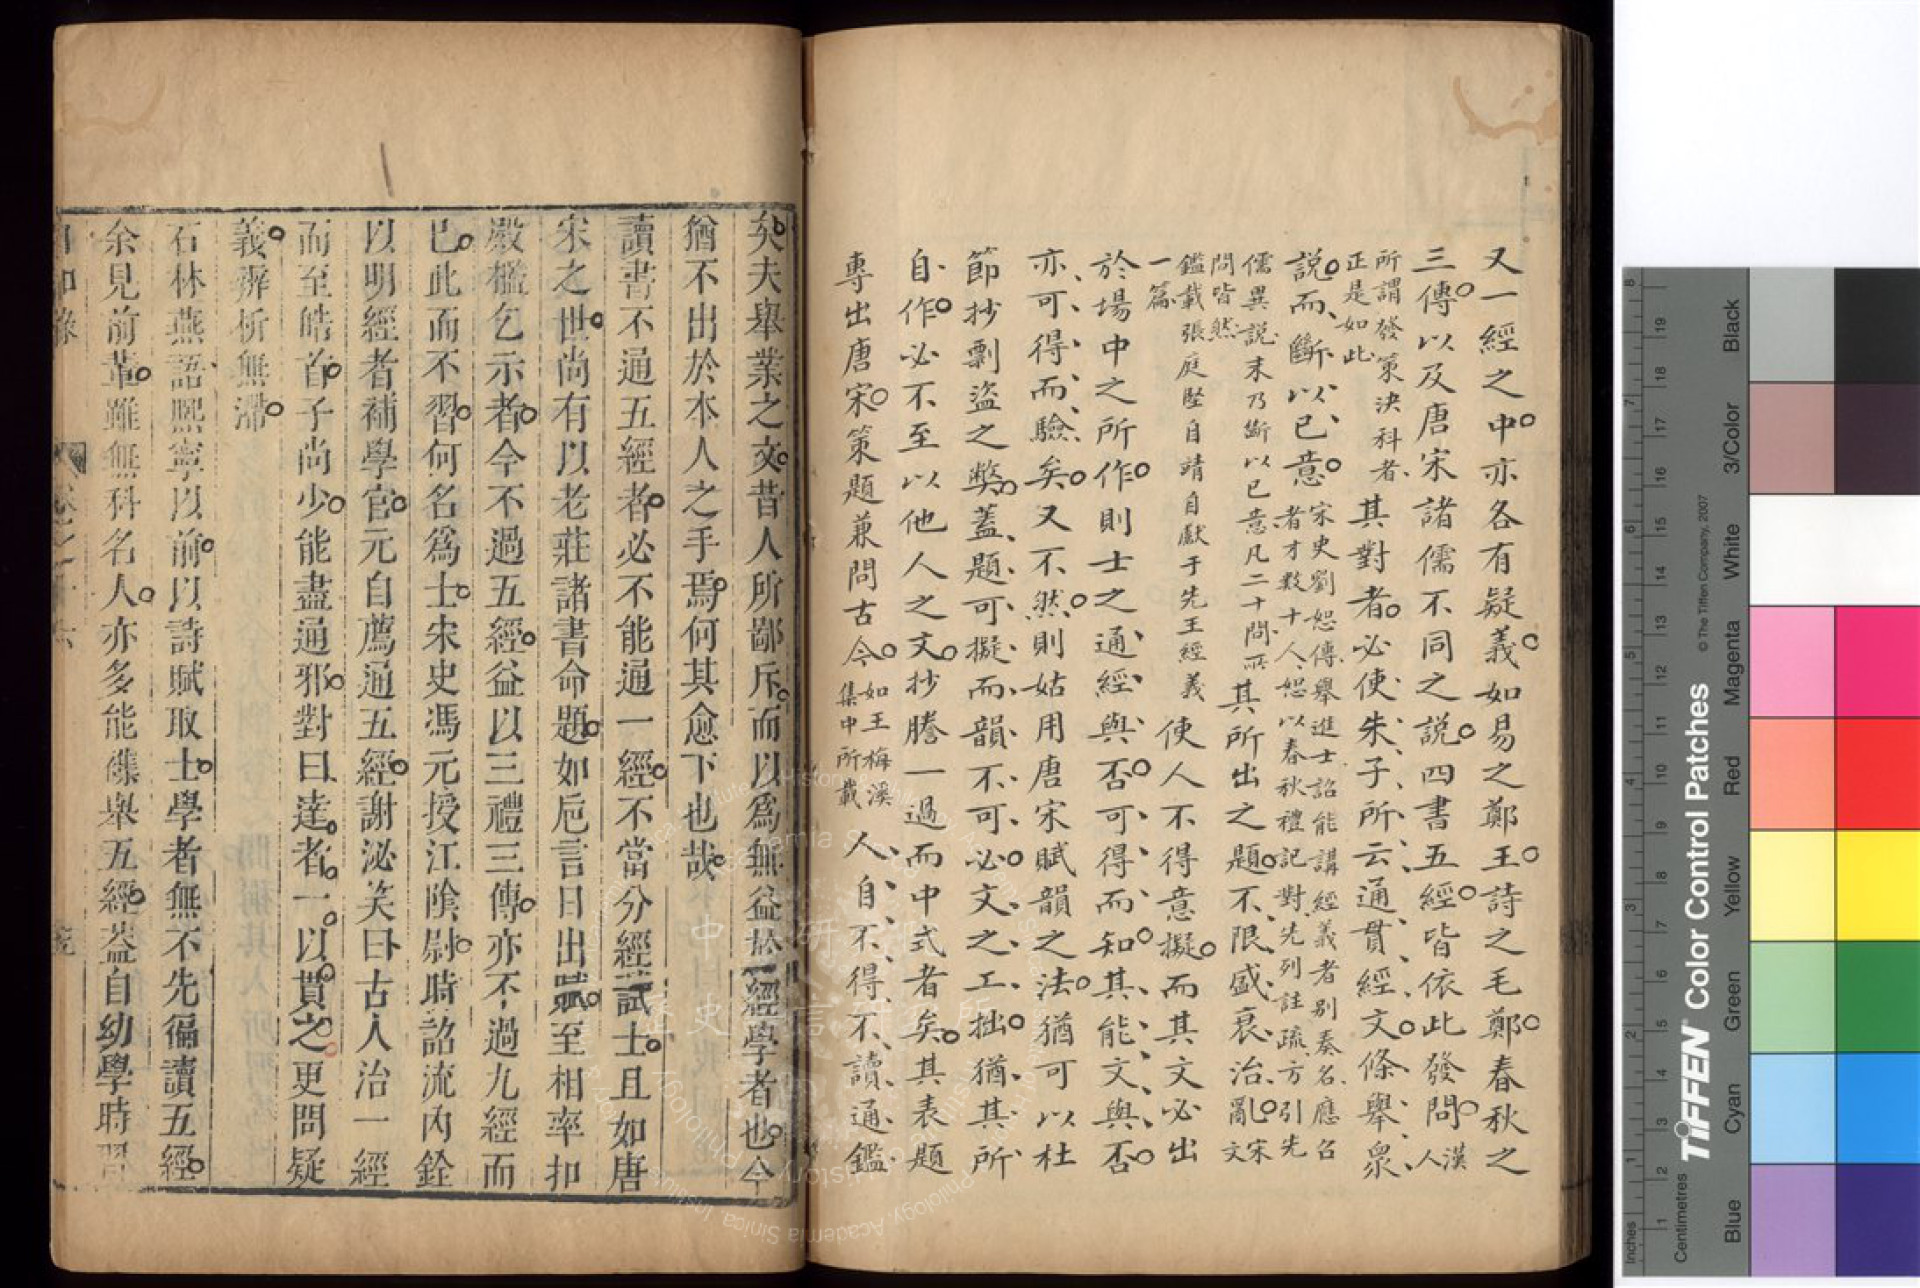 又一經之中亦各有疑義如易之鄭王詩之毛鄭春秋之
三傳以及唐宋諸儒不同之説四書五經皆依此發問漢人
所謂發策決科者正是如此其對者必使朱子所云通貫經文條舉衆
説而斷以已意宋史劉恕傳舉進士詔能講經義者别奏名應召者才數十人恕以春秋禮記對先列註疏方引先
儒異説末乃斷以已意凡二十問所問皆然其所出之題不限盛衰治亂宋文
鑑載張庭堅自靖自獻于先王經義一篇使人不得意擬而其文必出
於場中之所作則士之通經與否可得而知其能文與否
亦可得而驗矣又不然則姑用唐宋賦韻之法猶可以杜
節抄剽盜之弊蓋題可擬而韻不可必文之工拙猶其所
自作必不至以他人之文抄謄一過而中式者矣其表題
專出唐宋策題兼問古今如王梅溪集中所載人自不得不讀通鑑
矣夫舉業之文昔人所鄙斥而以爲無益於經學者也今
猶不出於本人之手焉何其愈下也哉
讀書不通五經者必不能通一經不當分經試士且如唐
宋之世尚有以老莊諸書命題如巵言日出賦至相率扣
殿檻乞示者今不過五經益以三禮三傳亦不過九經而
已此而不習何名爲士宋史馮元授江陰尉時詔流内銓
以明經者補學官元自薦通五經謝泌笑曰古人治一經
而至皓首子尚少能盡通邪對曰達者一以貫之更問疑
義辨析無滯
石林燕語熙寧以前以詩賦取士學者無不先徧讀五經
余見前輩雖無科名人亦多能襍舉五經葢自幼學時習
日知錄
卷之十六
Tiffen Color Control Patches
© The Tiffen Company, 2007
Inches
Centimetres
Blue Cyan Green Yellow Red Magenta White 3/Color Black